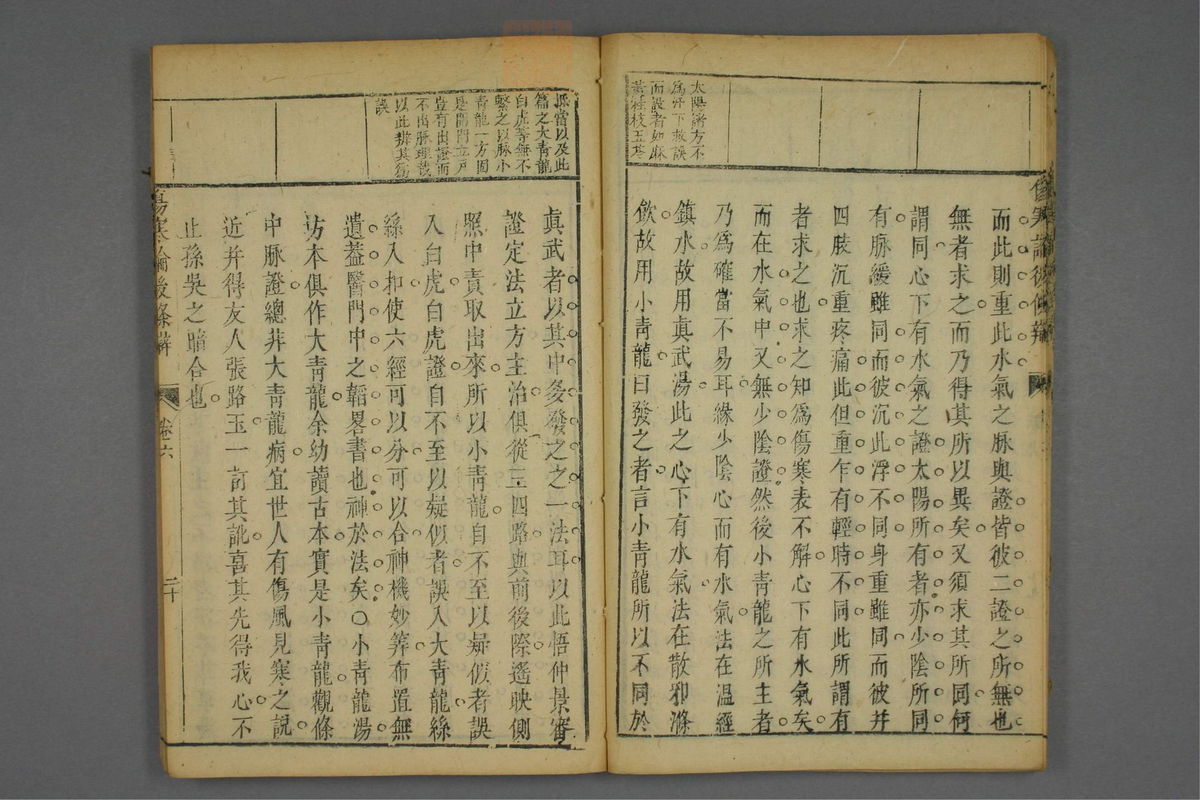 太陽諸方不
為汗下救誤
而設者如麻
黃桂枝五苓
而此則重此水氣之脉與證皆彼二證之所無也
無者求之而乃得其所以異矣又須求其所同何
謂同心下有水氣之證太陽所有者亦少陰所同
有脉緩雖同而彼沉此浮不同身重雖同而彼幷
四肢沉重疼痛此但重乍有輕時不同此所謂有
者求之也求之知為傷寒表不解心下有水氣矣
而在水氣中又無少陰證然後小青龍之所主者
乃為確當不易耳緣少陰心而有水氣法在溫經
鎮水故用真武湯此之心下有水氣法在散邪滌
飲故用小青龍曰發之者言小青龍所以不同於
傷寒論後條辨
湯當以及此
篇之大青龍
白虎等無不
繫之以脉小
青龍一方固
是開門立戶
豈有出證而
不出脉理哉
以此辨其為
誤
真武者以其中発發之之一法耳以此悟仲景審
證定法立方主治俱從三四路與前後際遙映側
照中責取出來所以小青龍自不至以疑似者誤
入白虎白虎證自不至以疑似者誤入大青龍絲
絲入扣使六經可以分可以合神機妙筭布置無
遺蓋醫門中之韜畧書也神於法矣○小青龍湯
坊本俱作大青龍余幼讀古本實是小青龍觀條
中脉證總非大青龍病宜世人有傷風見寒之說
近幷得友人張路玉一訂其訛喜其先得我心不
止孫吳之暗合也
傷寒論後條辨
卷六
二十